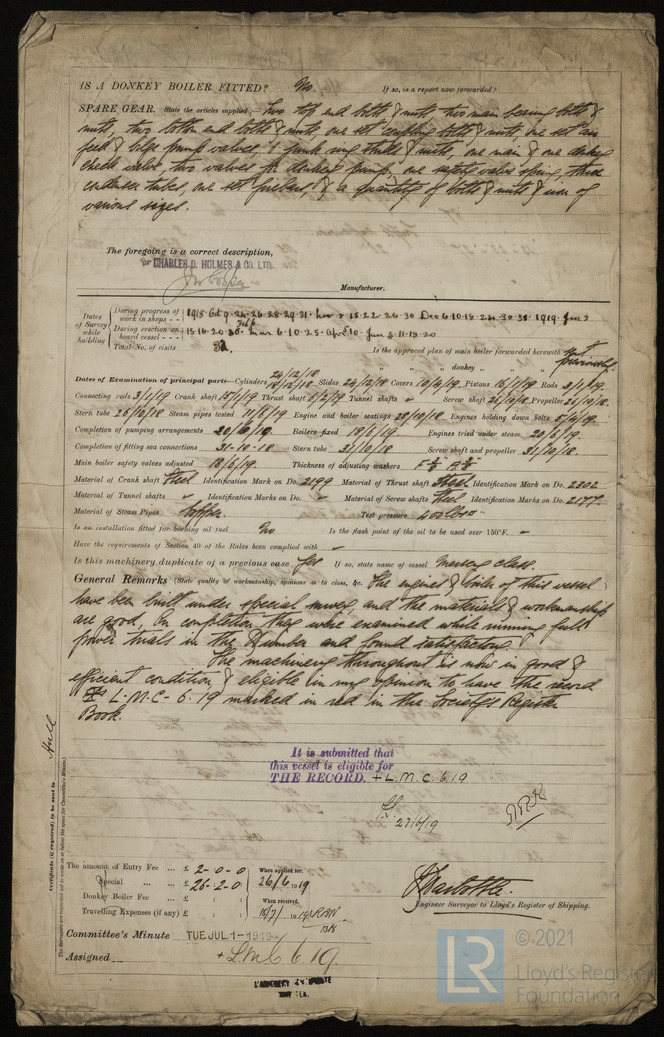 IS A DONKEY BOILER FITTED? No. If so, is a report now forwarded?
SPARE GEAR. State the articles supplied:— Two top end bolts & nuts, two main bearing bolts &
nuts, two bottom end bolts & nuts, one set coupling bolts & nuts, one set air
feed & bilge pump valves, 1 junk ring studs & nuts, one main & one donkey
check valve, two valves for donkey pump, one safety valve spring, three
condenser tubes, one set firebars, & a quantity of bolts & nuts & iron of
various sizes.
The foregoing is a correct description,
For CHARLES D. HOLMES & CO. LTD.
Manufacturer.
Dates of Survey while building
During progress of work in shops - - 1918 Oct 9. 24. 26. 28. 29. 31. Nov 8. 15. 22. 26. 30 Dec 6. 10. 18. 24. 30. 31. 1919. Jan 3
During erection on board vessel - - - 15. 16. 20. 30. Feb 6 Mar 6. 10. 25. Apr 10. Jun 5. 11. 18. 20
Total No. of visits 32.
Is the approved plan of main boiler forwarded herewith previously
" " " donkey " " "
Dates of Examination of principal parts—Cylinders 24/12/18 Slides 24/12/18 Covers 10/4/19. Pistons 15/1/19. Rods 3/1/19.
Connecting rods 3/1/19 Crank shaft 15/1/19 Thrust shaft 6/2/19 Tunnel shafts - Screw shaft 26/10/18 Propeller 26/10/18.
Stern tube 28/10/18 Steam pipes tested 11/6/19 Engine and boiler seatings 28/10/18 Engines holding down bolts 5/6/19.
Completion of pumping arrangements 20/6/19 Boilers fixed 18/6/19. Engines tried under steam 20/6/19.
Completion of fitting sea connections 31-10-18 Stern tube 31/10/18 Screw shaft and propeller 31/10/18.
Main boiler safety valves adjusted 18/6/19. Thickness of adjusting washers
Material of Crank shaft Steel Identification Mark on Do. 2199 Material of Thrust shaft Steel Identification Mark on Do. 2302
Material of Tunnel shafts - Identification Marks on Do. - Material of Screw shafts Steel Identification Marks on Do. 2177
Material of Steam Pipes Copper. Test pressure 400 lbs
Is an installation fitted for burning oil fuel No Is the flash point of the oil to be used over 150°F. -
Have the requirements of Section 49 of the Rules been complied with -
Is this machinery duplicate of a previous case Yes If so, state name of vessel Mersey class.
General Remarks (State quality of workmanship, opinions as to class, &c. The engines & boiler of this vessel
have been built under special survey, and the materials & workmanship
are good, On completion they were examined while running full
power trials in the Humber and found satisfactory.
The machinery throughout is now in good &
efficient condition & eligible in my opinion to have the record
+ L.M.C- 6.19 marked in red in the Society's Register
Book.
It is submitted that
this vessel is eligible for
THE RECORD. + L.M.C. 6.19
27/6/19
Certificate (if required) to be sent to Hull
The Surveyors are requested not to write on or below the space for Committee's Minute.
The amount of Entry Fee ... £ 2-0-0 When applied for,
Special ... ... £ 26-2-0 26/6 1919
Donkey Boiler Fee ... £ : : When received,
Travelling Expenses (if any) £ : : 18/7/1919
Engineer Surveyor to Lloyd's Register of Shipping.
Committee's Minute TUE. JUL. 1-1919
Assigned + L.M.C 6.19.
LR © 2021
Lloyd's Register
Foundation